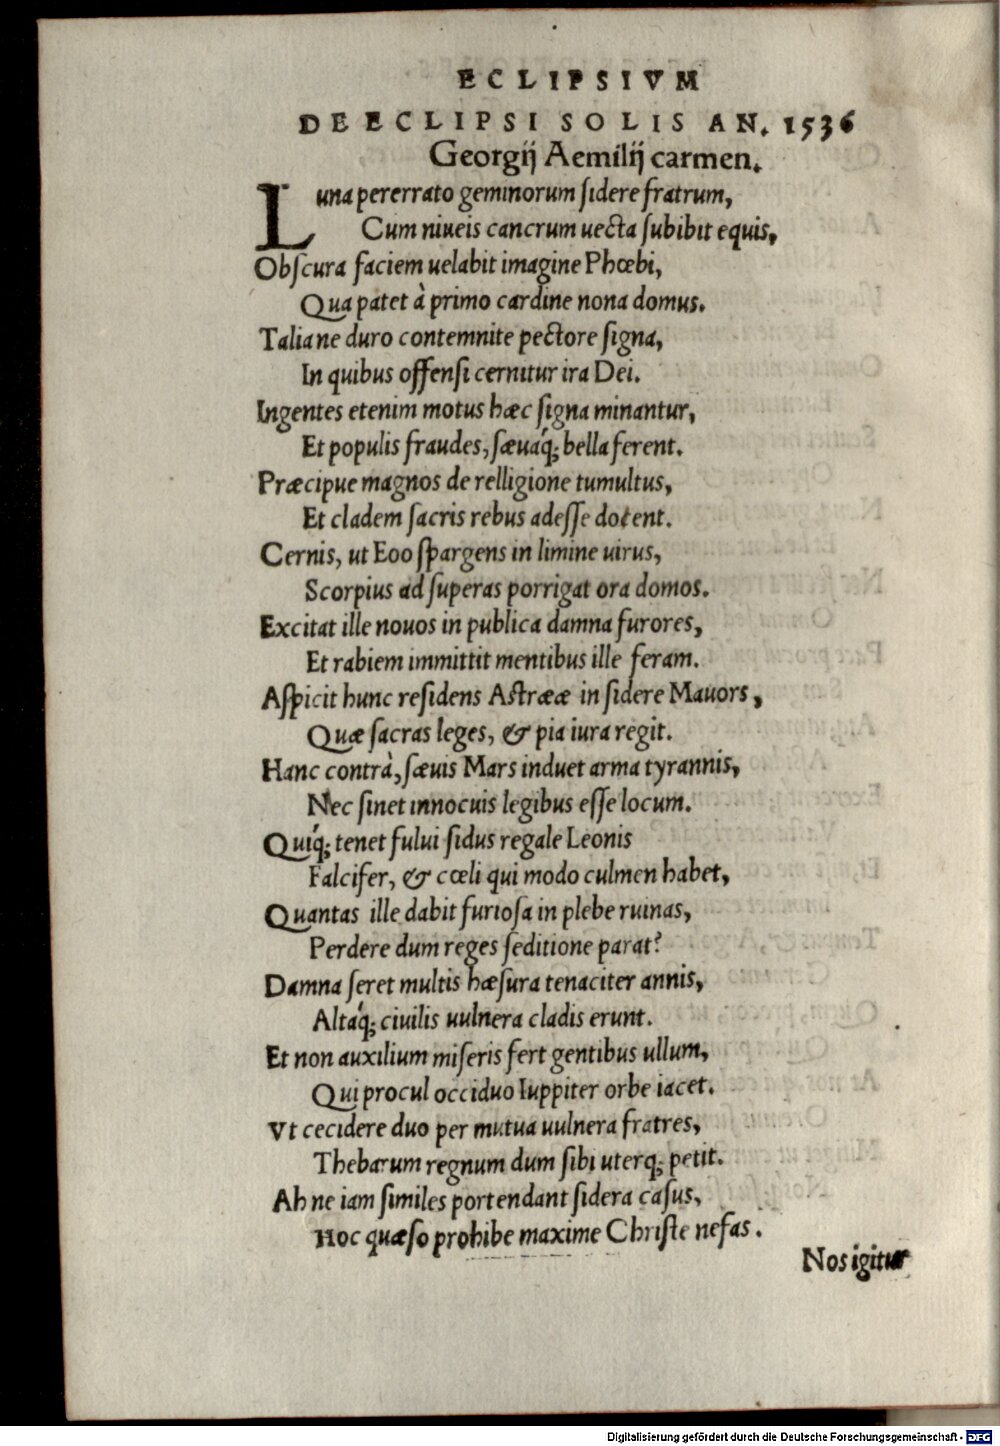 ECLIPSIVM
DE ECLIPSI SOLIS AN. 1536
Georgij Aemilij carmen.
Luna pererrato geminorum ſidere fratrum,
Cum niueis cancrum uecta ſubibit equis,
Obſcura faciem uelabit imagine Phœbi,
Qua patet à primo cardine nona domus.
Talia ne duro contemnite pectore ſigna,
In quibus offenſi cernitur ira Dei.
Ingentes etenim motus hæc ſigna minantur,
Et populis fraudes, ſæuaq́; bella ferent.
Præcipue magnos de relligione tumultus,
Et cladem ſacris rebus adeſſe docent.
Cernis, ut Eoo ſpargens in limine uirus,
Scorpius ad ſuperas porrigat ora domos.
Excitat ille nouos in publica damna furores,
Et rabiem immittit mentibus ille feram.
Aſpicit hunc reſidens Aſtrææ in ſidere Mauors,
Quæ ſacras leges, & pia iura regit.
Hanc contrà, ſæuis Mars induet arma tyrannis,
Nec ſinet innocuis legibus eſſe locum.
Quiq́; tenet fului ſidus regale Leonis
Falcifer, & cœli qui modo culmen habet,
Quantas ille dabit furioſa in plebe ruinas,
Perdere dum reges ſeditione parat?
Damna ſeret multis hæſura tenaciter annis,
Altaq́; ciuilis uulnera cladis erunt.
Et non auxilium miſeris fert gentibus ullum,
Qui procul occiduo Iuppiter orbe iacet.
Vt cecidere duo per mutua uulnera fratres,
Thebarum regnum dum ſibi uterq; petit.
Ah ne iam ſimiles portendant ſidera caſus,
Hoc quæſo prohibe maxime Chriſte nefas.
Nos igitur
Digitalisierung gefördert durch die Deutsche Forschungsgemeinschaft - DFG